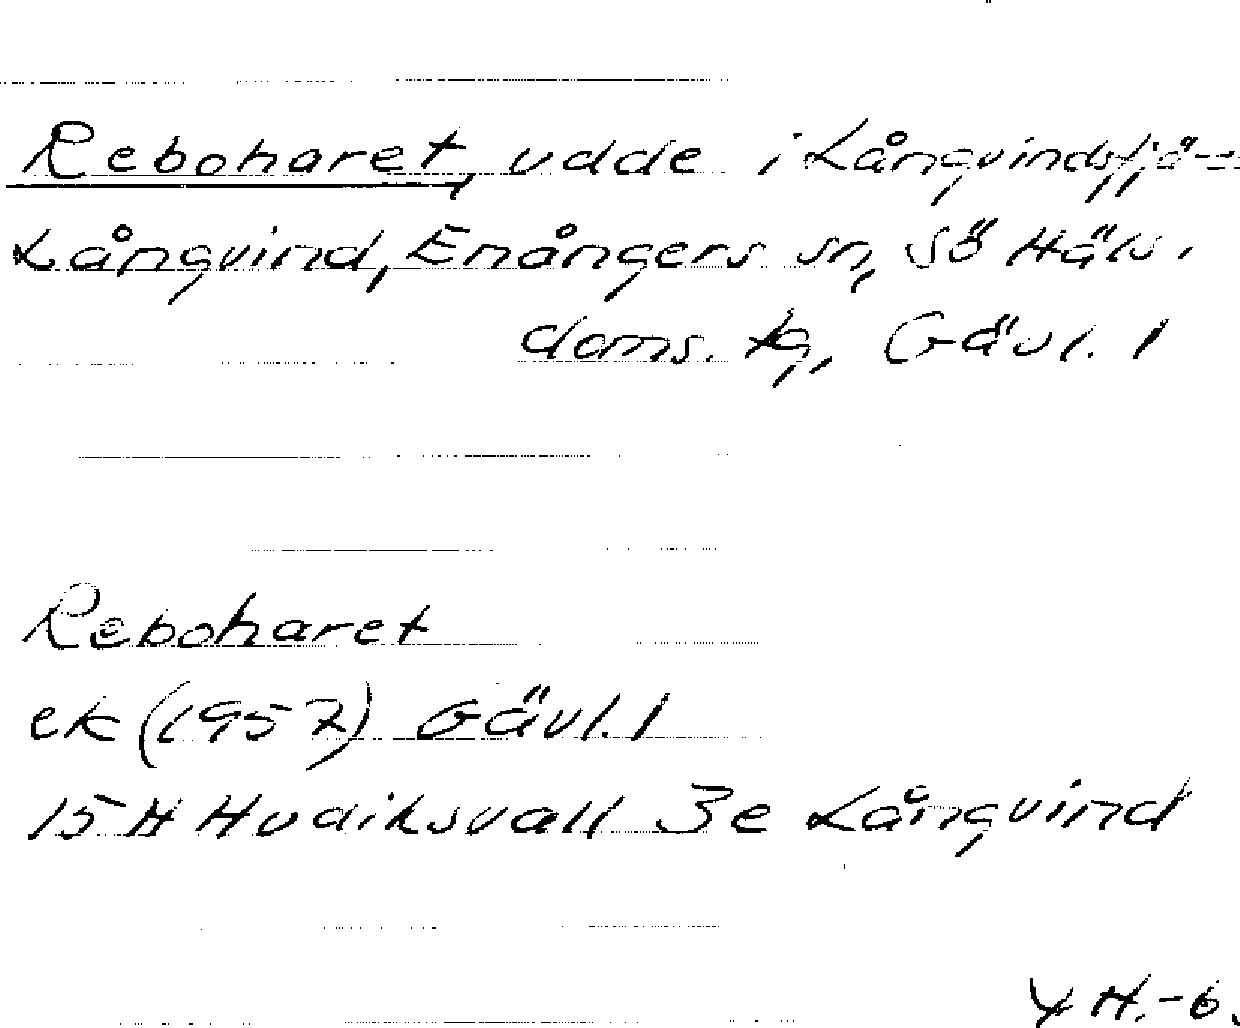 Reboharet, udde i Långvindsfjä-
Långvind, Enångers sn, Sö Häls.
doms. tg, Gävl. l
Reboharet
ek (1957) Gävl. l
15 H Hudiksvall 3e Långvind
Y H.-6